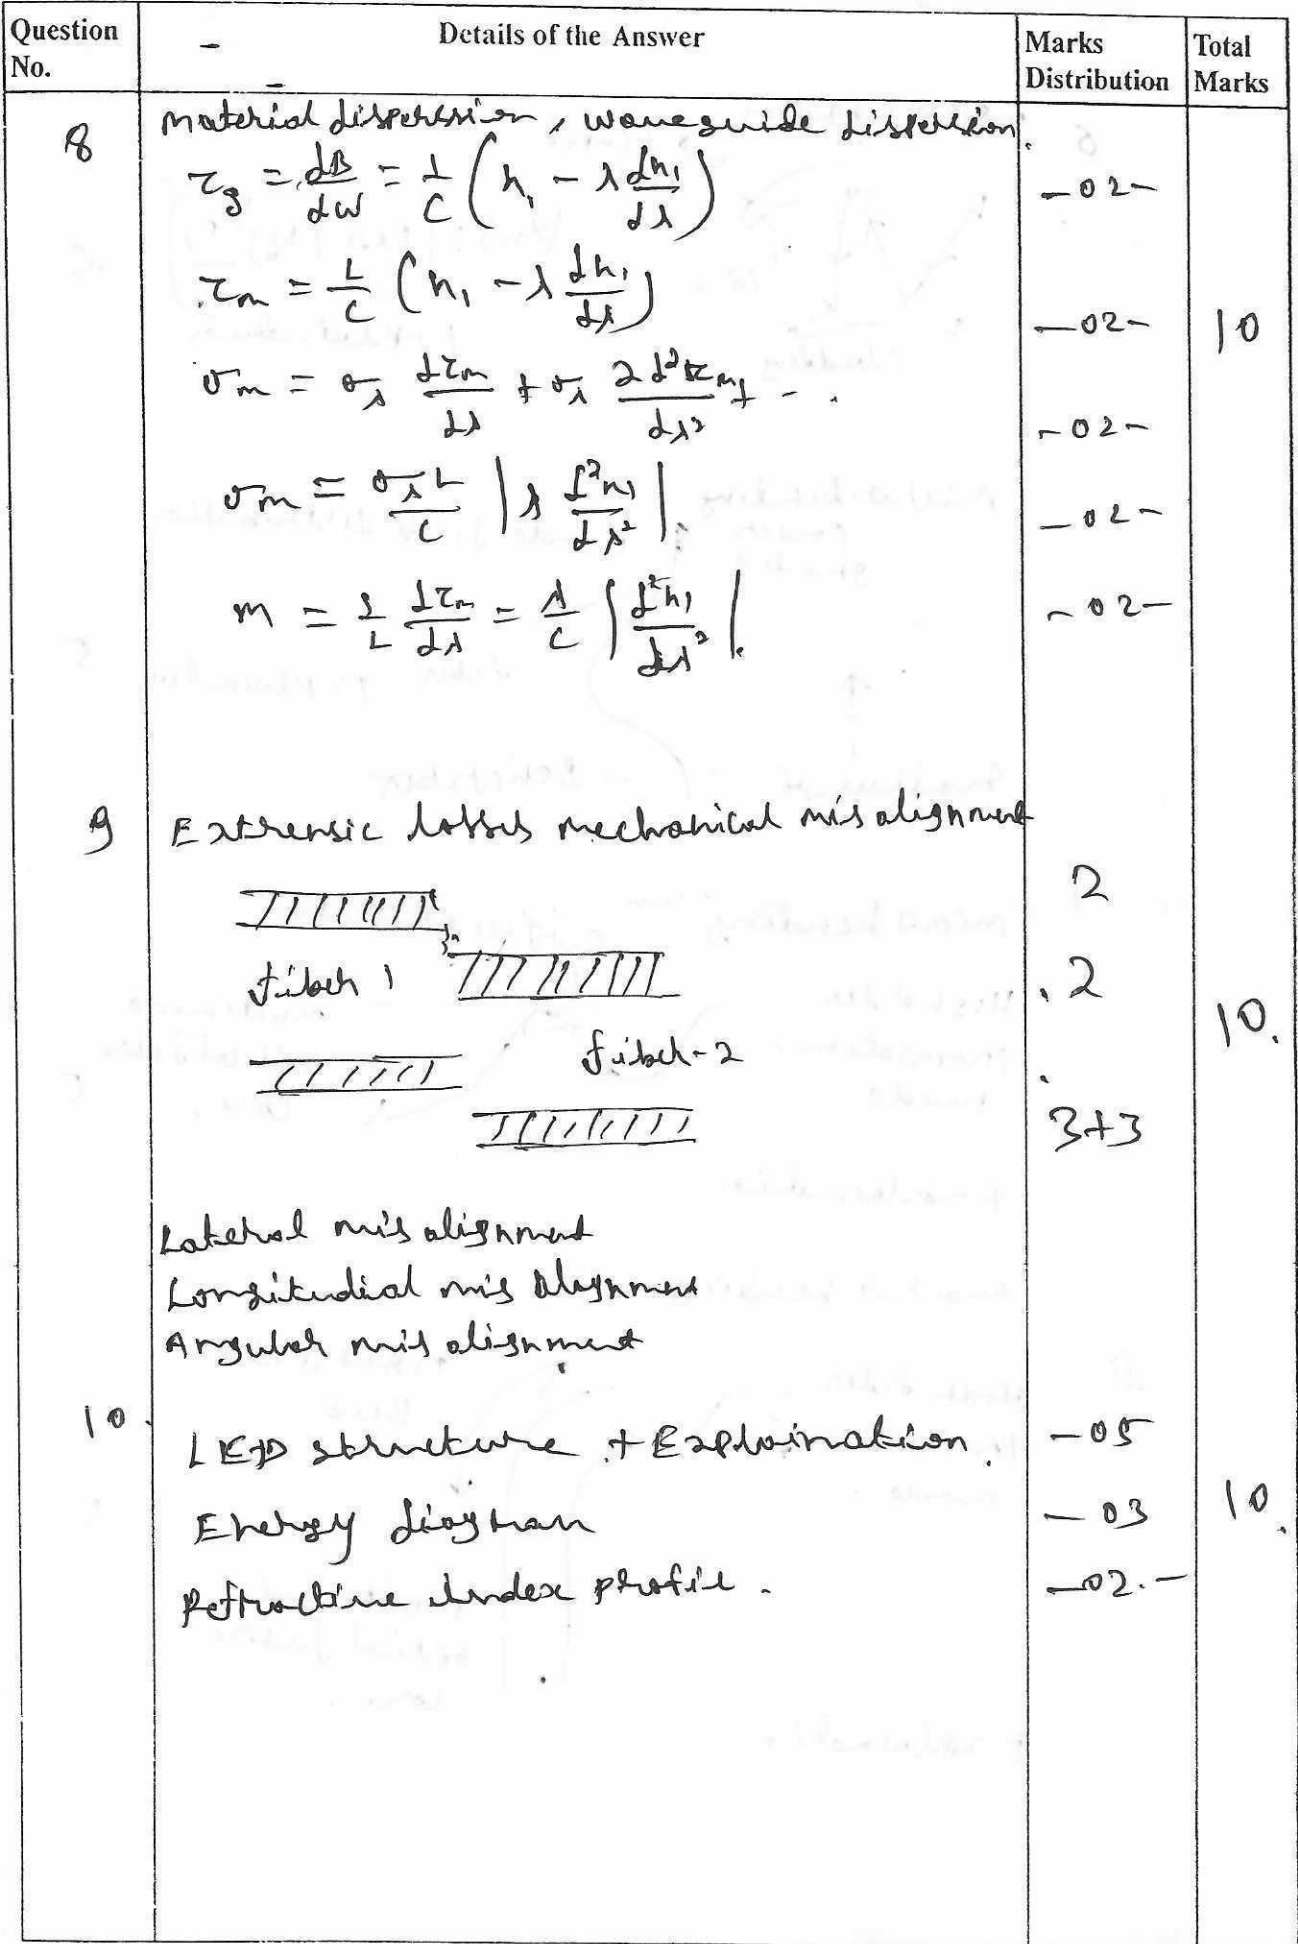 Question No.
Details of the Answer
Marks Distribution
Total Marks
8
Material dispersion, waveguide dispersion.
τg = dβ/dω = 1/C (n₁ − λ dn₁/dλ) −02−
τm = L/C (n₁ − λ dn₁/dλ) −02− 10
σm = σλ dτm/dλ + σλ 2d²τm/dλ² + - . −02−
σm = σλL/C |λ d²n₁/dλ²|. −02−
m = 1/L dτm/dλ = λ/C |d²n₁/dλ²|. −02−
9 Extrensic losses mechanical mis alignment
2
fiber 1 2
10.
fiber-2
3+3
Lateral mis alignment
Longitudial mis alignment
Angular mis alignment
10. LED structure + Explaination. −05
Energy diagram −03 10.
Refractive index profil. −02.−